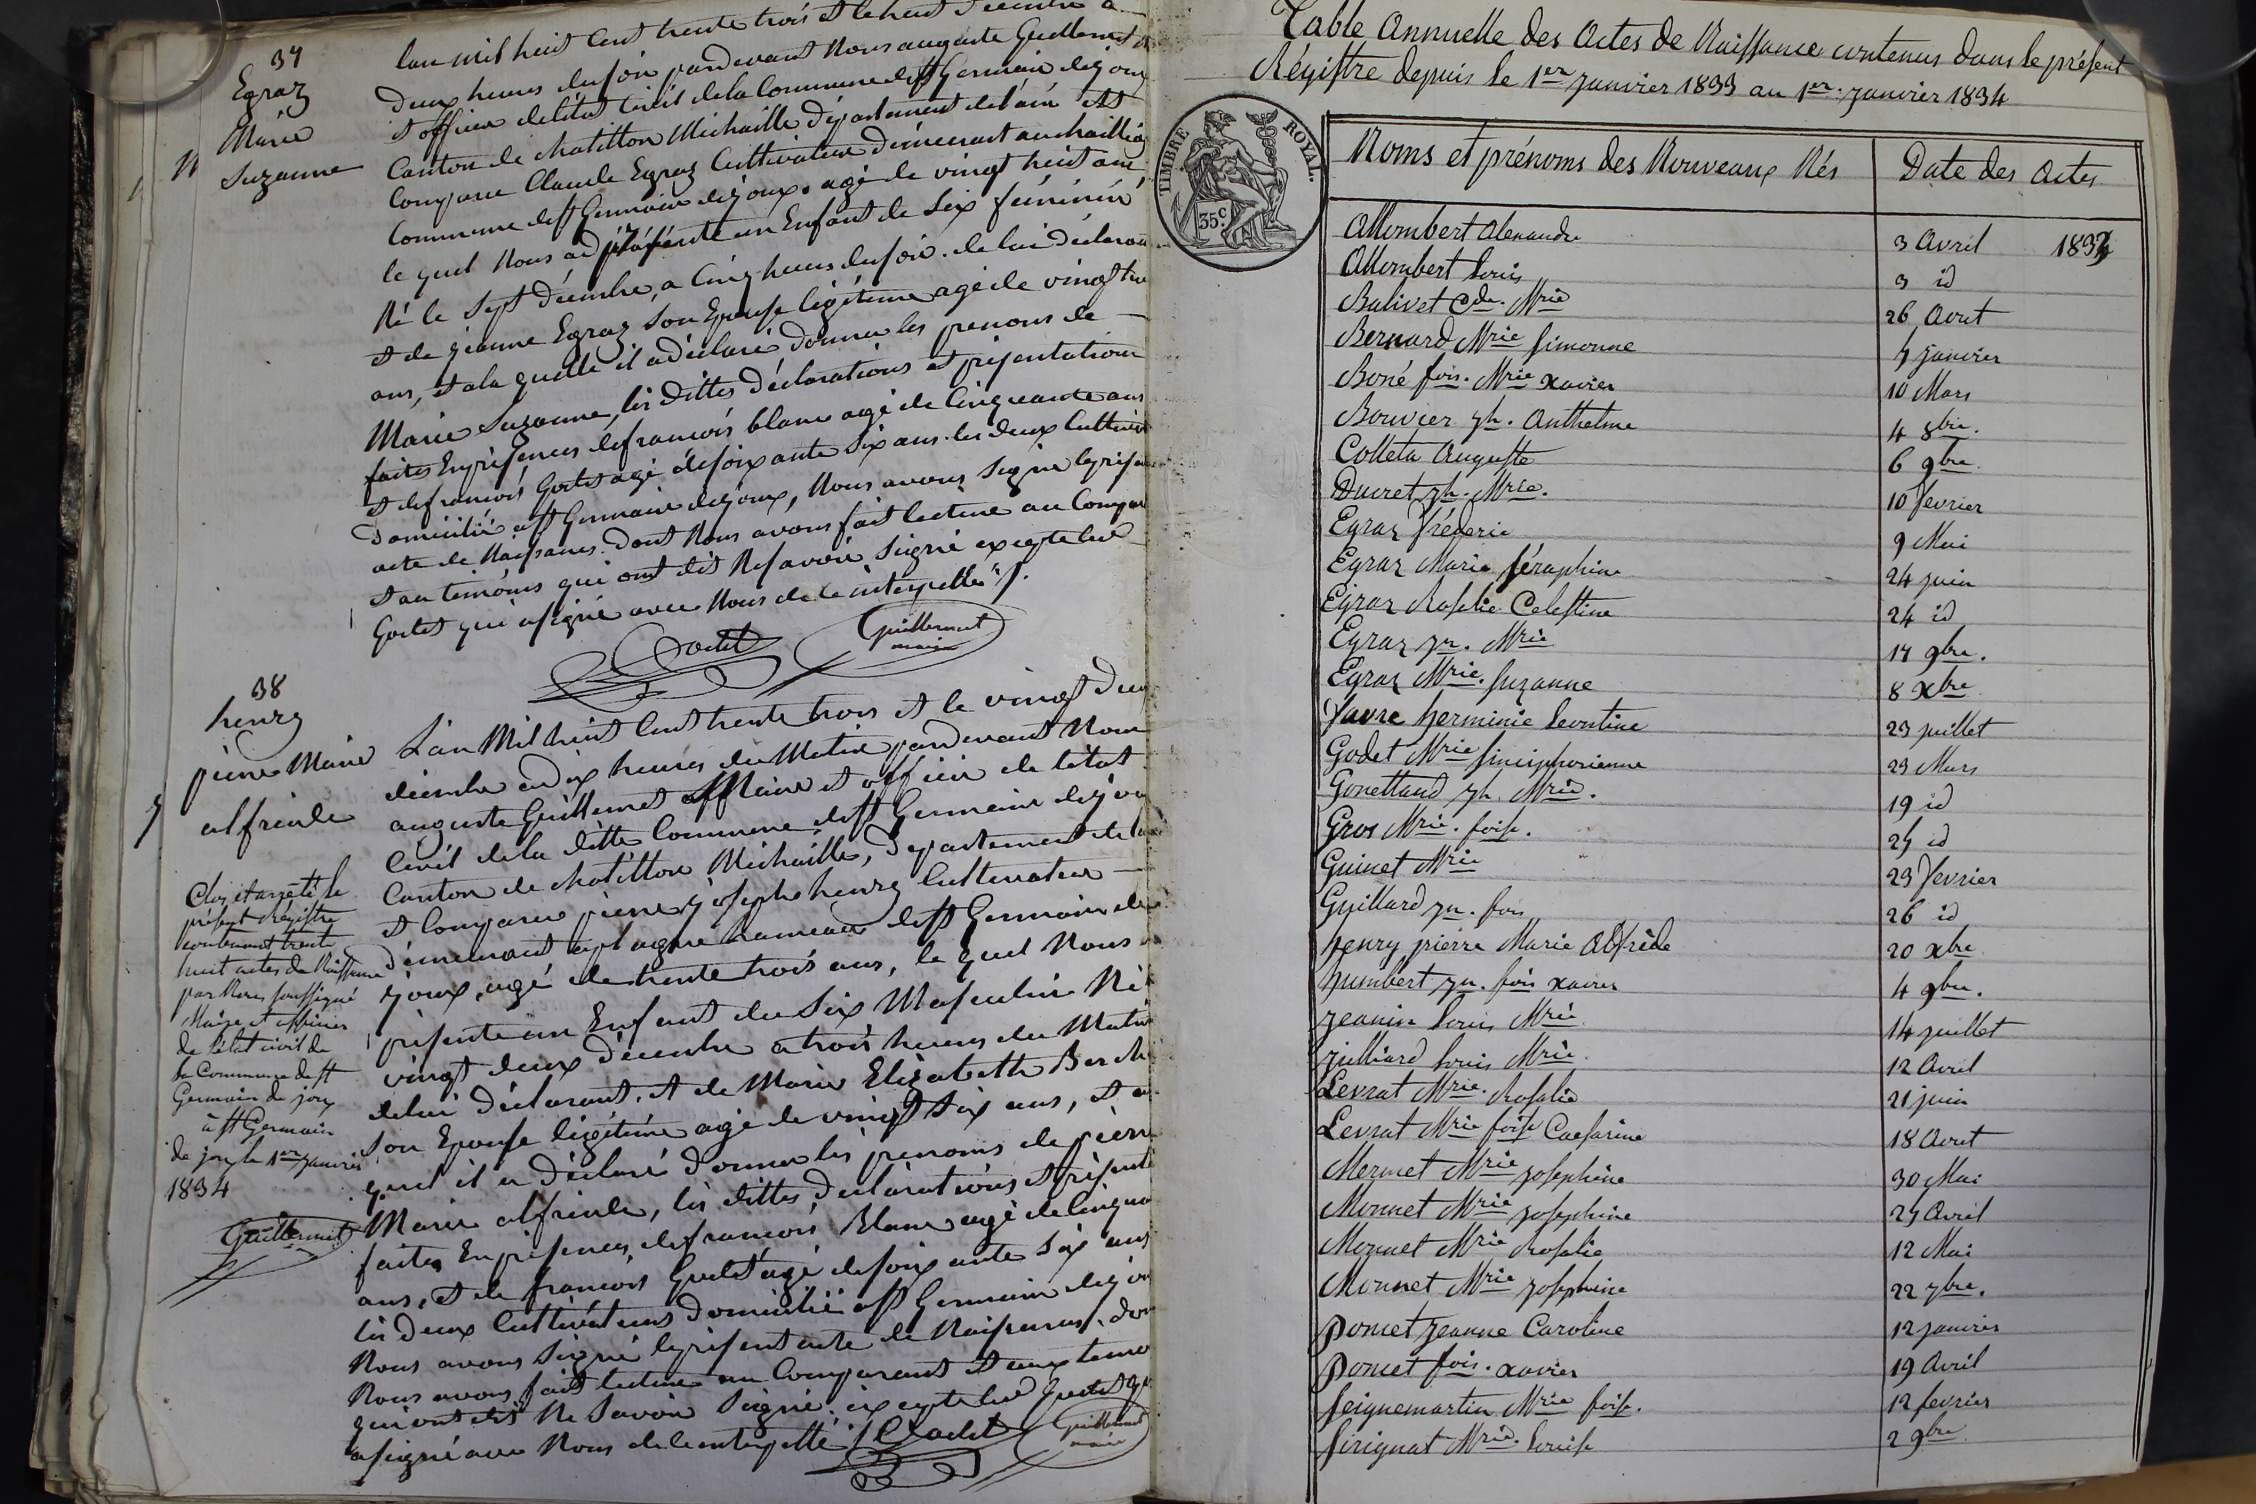 37
Egraz
Marie
Suzanne
N
L'an mil huit cent trente trois et le huit décembre a
deux heures du soir pardevant Nous auguste Guillermet
et officier de létat Civil de la Commune de St Germain de joux
Canton de Chatillon Michaille Département de l'ain Et
Comparu Claude Egraz Cultivateur démeurant au
Commune de St Germain de joux, agé de vingt huit ans
le quel Nous a présenté un Enfant de Sex féminin
Né le Sept Décembre, a Cinq heures du soir. de lui déclarant
et de jeanne Egraz Son Epouse légitime agé de vingt
ans, et a la quelle il a déclaré donner les prenoms de
Marie Suzanne, les dittes déclarations et présentations
faites En présences de francois blanc agé de Cinquante ans
et de francois Godet agé de soixante Six ans. les deux Cultiv
Domicilié a St Germain de joux, Nous avons Signé le prés
acte de Naissances. dont Nous avons fait lecture au Compar
et au témoins qui ont dit Ne savoir Signé excepté led
Godet qui a signé avec Nous de ce interpellé ./.
Godet
Guillermet
maire
38
henry
pierre Marie
alfrede
L'an Mil huit Cent trente trois et le vingt deux
décembre a dix heures du Matin pardevant Nous
auguste Guillermet Maire et officier de létat
Civil de la ditte Commune de St Germain de jou
Canton de Chatillon Michaille, Département de l
et Comparu pierre joseph henry Cultivateur
démeurant a plagne hameau de St Germain de
joux, agé de trente trois ans, le quel Nous
présente un Enfant du Sex Masculin Né
vingt deux décembre a trois heures du Matin
de lui déclarant. et de Marie Elizabeth
Son Epouse légitime agé de vingt Six ans, et a
quel il a déclaré donner les prenoms de pierre
Marie alfrede, les dittes déclarations et présent
faites En présences de francois Blanc agé de Cinqua
ans, et de francois Godet agé de soixante Six ans
les deux Cultivateurs domicilié a St Germain de jou
Nous avons Signé le présent acte de Naissances. don
Nous avons fait lecture au Comparant et aux temo
qui ont dit Ne Savoir Signé. excepté led Godet qu
a signé avec Nous de ce interpellé ./.
Godet
Guillermet
maire
Clos et arrêté le
présent Régistre
contenant trente
huit actes de Naissance
par Nous soussigné
Maire et officier
de l'état civil de
la Commune de St
Germain de joux
à St Germain
de joux le 1er janvier
1834
Guillermet
Table Annuelle des Actes de Naissance contenus dans le présent
Régistre depuis le 1er janvier 1833 au 1er. janvier 1834
TIMBRE ROYAL.
35c.
Noms et prénoms des Nouveaux Nés Date des Actes
Allombert Alexandre 3 Avril 1833
Allombert Louis 3 id
Balivet Cde. Mrie 26 Aout
Bernard Mrie Simonne 4 janvier
Boné fois. Mrie xavier 10 Mars
Bouvier jh. Anthelme 4 8bre.
Colleta Auguste 6 9bre.
Ducret jh. Mrie. 10 fevrier
Egraz fréderic 9 Mai
Egraz Marie Séraphine 24 juin
Egraz Rosalie Celestine 24 id
Egraz jn. Mrie 17 9bre.
Egraz Mrie. Suzanne 8 xbre
favre herminie Leontine 23 juillet
Godet Mrie Simiphorienne 23 Mars
Gonettaud jh. Mrie. 19 id
Gros Mrie. foise. 25 id
Guinet Mrie 23 fevrier
Guillard jn. fois 26 id
henry pierre Marie Alfrède 20 xbre
humbert jn. fois xavier 4 9bre.
jeanin Louis Mrie 14 juillet
julliard Louis Mrie. 12 Avril
Levrat Mrie. Rosalie 21 juin
Levrat Mrie foise Caesarine 18 Aout
Mermet Mrie josephine 30 Mai
Monnet Mrie josephine 25 Avril
Monnet Mrie Rosalie 12 Mai
Monnet Mrie josephine 22 7bre.
Poncet jeanne Caroline 12 janvier
Poncet fois. xavier 19 Avril
Seignemartin Mrie foise. 12 fevrier
Sirignat Mrie. Louise 2 9bre